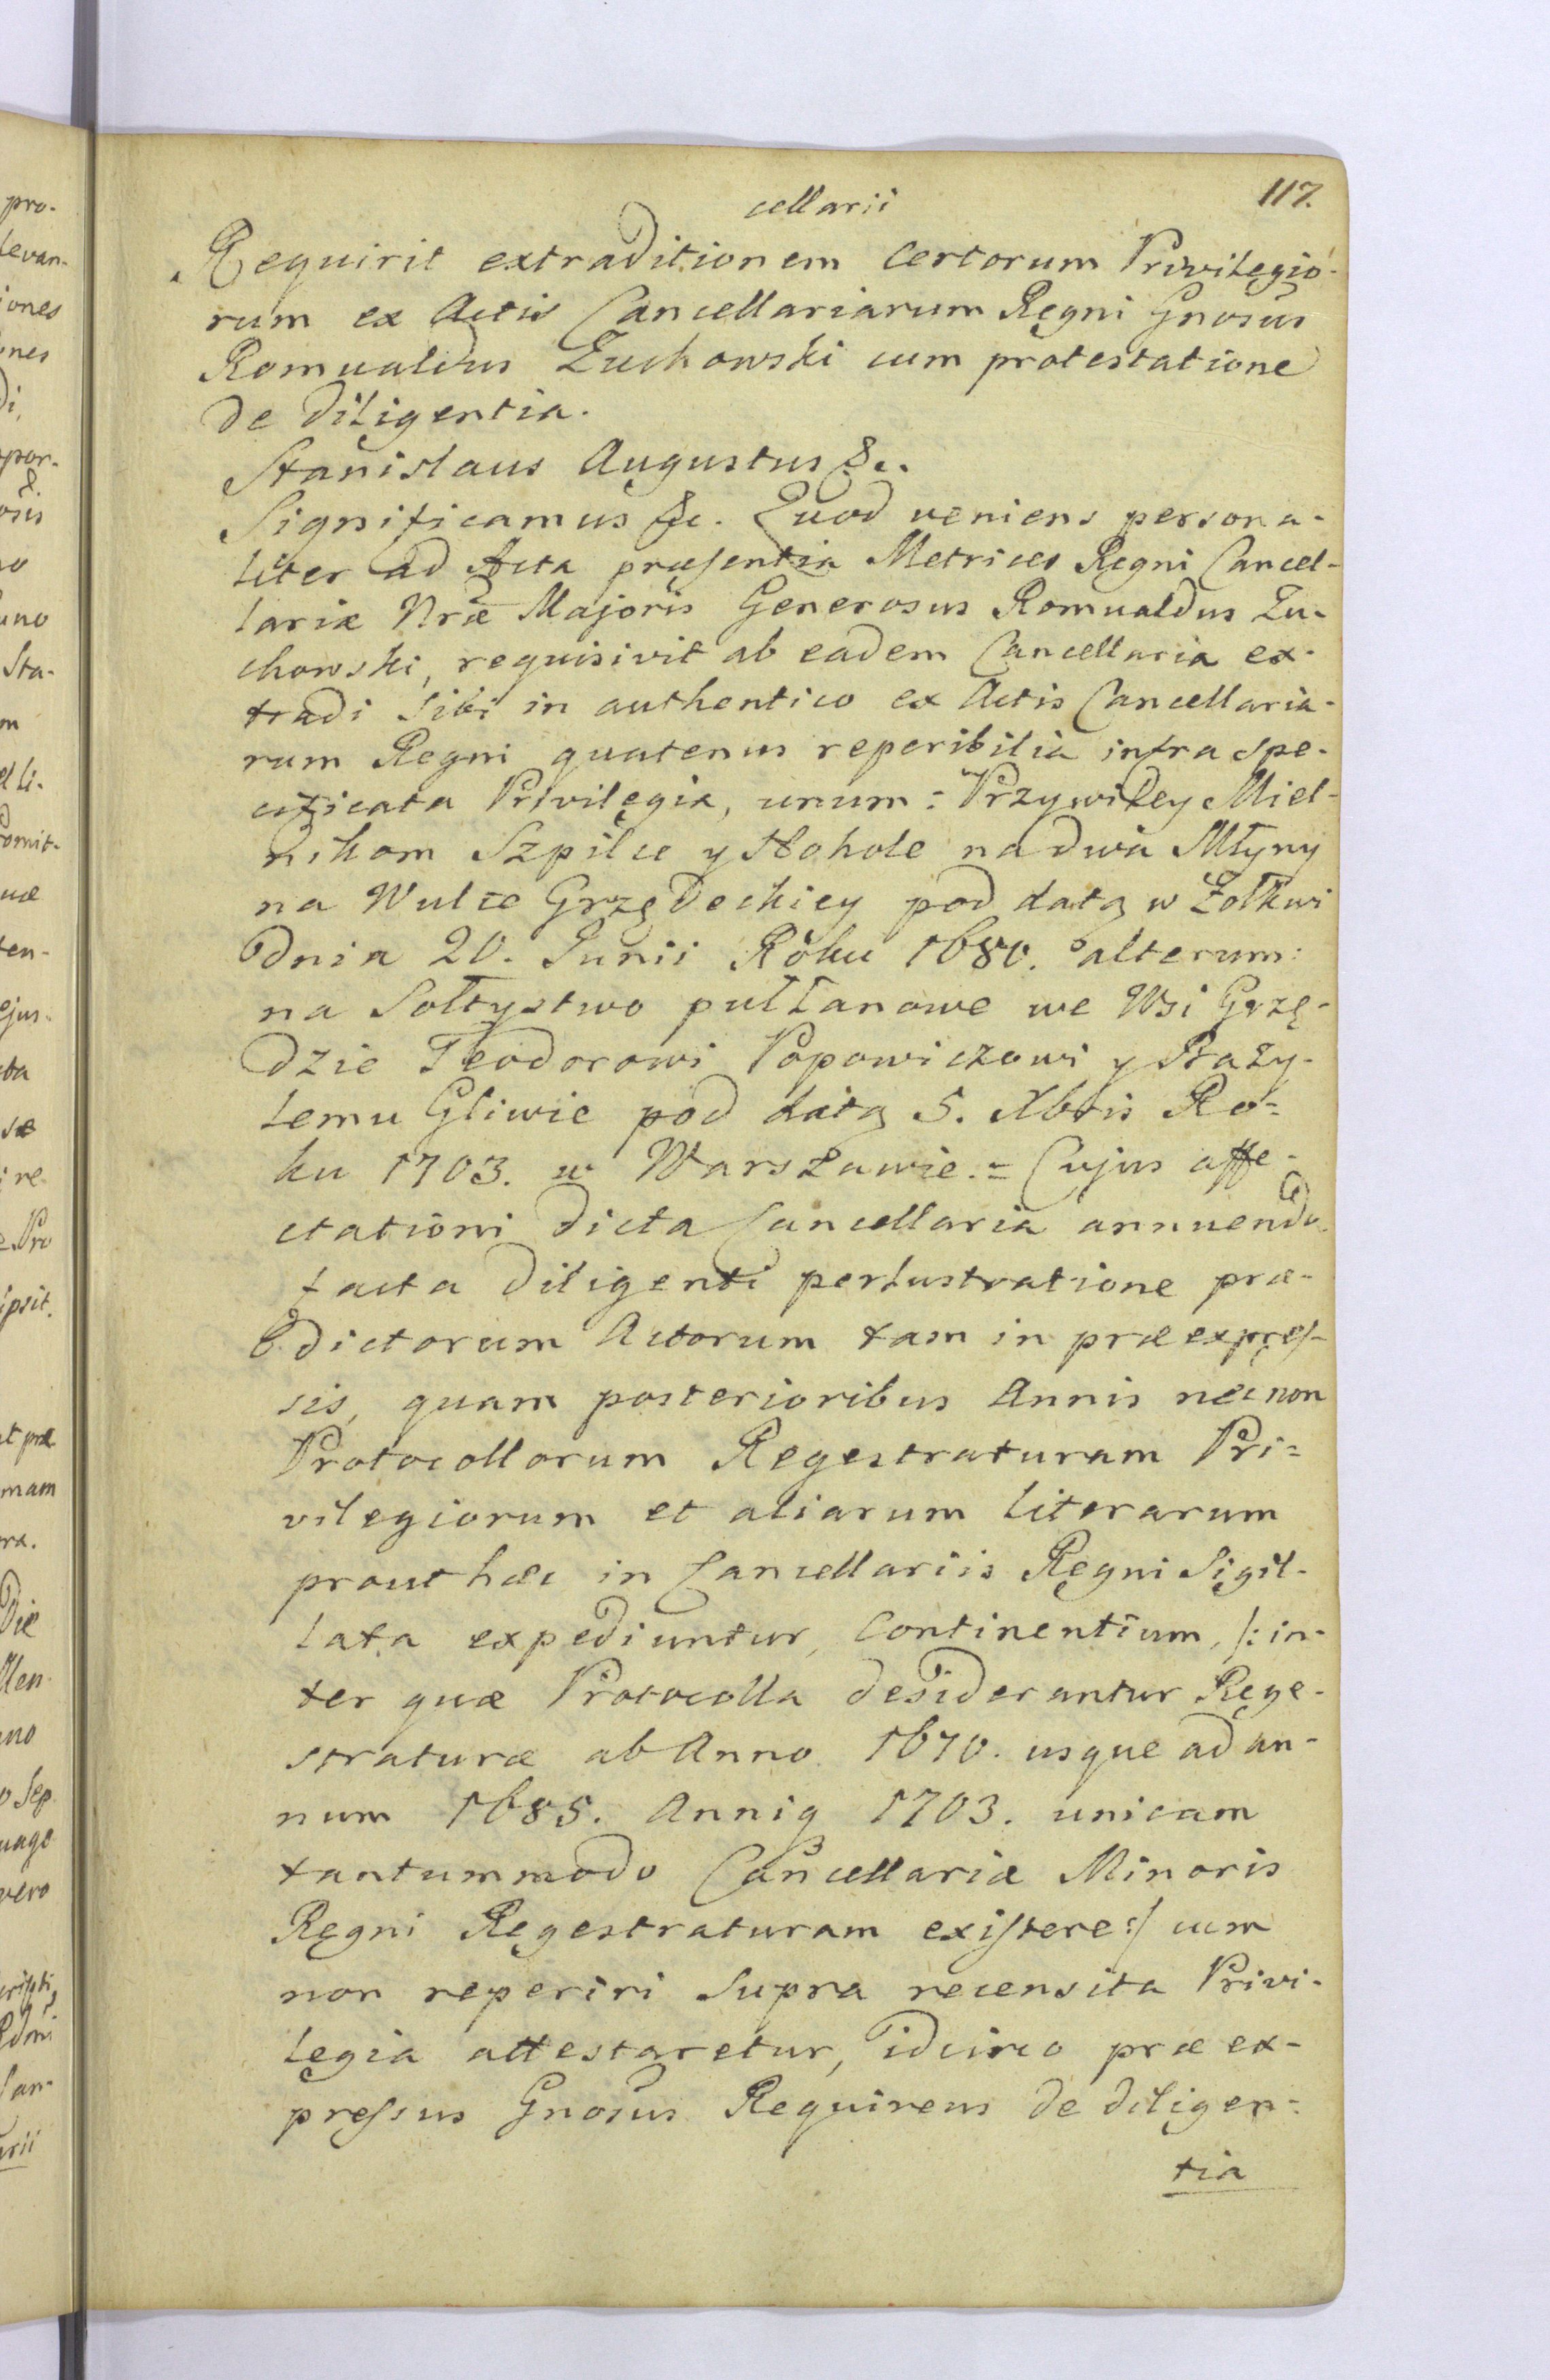 117.
cellarii
Requirit extraditionem certorum Privilegio-
rum ex Actis Cancellariarum Regni Gnosus
Romualdus Zuchowski cum protestatione
de diligentia.
Stanislaus Augustus &c.
Significamus &c. Quod veniens persona-
liter ad Acta præsentia Metrices Regni Cancel-
lariæ Nræ Majoris Generosus Romualdus Zu-
chowski, requisivit ab eadem Cancellaria ex-
tradi sibi in authentico ex Actis Cancellaria-
rum Regni quatenus reperibilia infra spe-
cificata Privilegia, unum: Przywiley Miel-
nikom Szpilce y Hohole na dwa Młyny
na Wulce Grzędeckiey pod datą w Żołkwi
dnia 20. Junii Roku 1680. alterum:
na Sołtystwo pułłanowe we Wsi Grzę-
dzie Teodorowi Popowiczowi y Bazy-
lemu Gliwie pod datą 5. Xbris Ro-
ku 1703. w Warszawie.= Cujus affe-
ctationi dicta Cancellaria annuendo
facta diligenti perlustratione præ-
dictorum Actorum tam in præexpres-
sis, quam posterioribus Annis nec non
Protocollorum Regestraturam Pri-
vilegiorum et aliarum literarum
prout hæc in Cancellariis Regni Sigil-
lata expediuntur, continentium, /: in-
ter quæ Protocolla desiderantur Rege-
straturæ ab Anno 1670. usque ad an-
num 1685. Anniq 1703. unicam
tantummodo Cancellariæ Minoris
Regni Regestraturam existere :/ cum
non reperiri supra recensita Privi-
legia attestaretur, idcirco præ ex-
pressus Gnosus Requirens de diligen-
tia